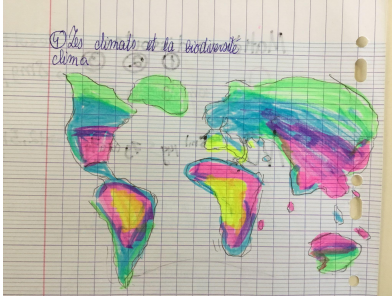 ④ Les climats et la biodiversité
clima